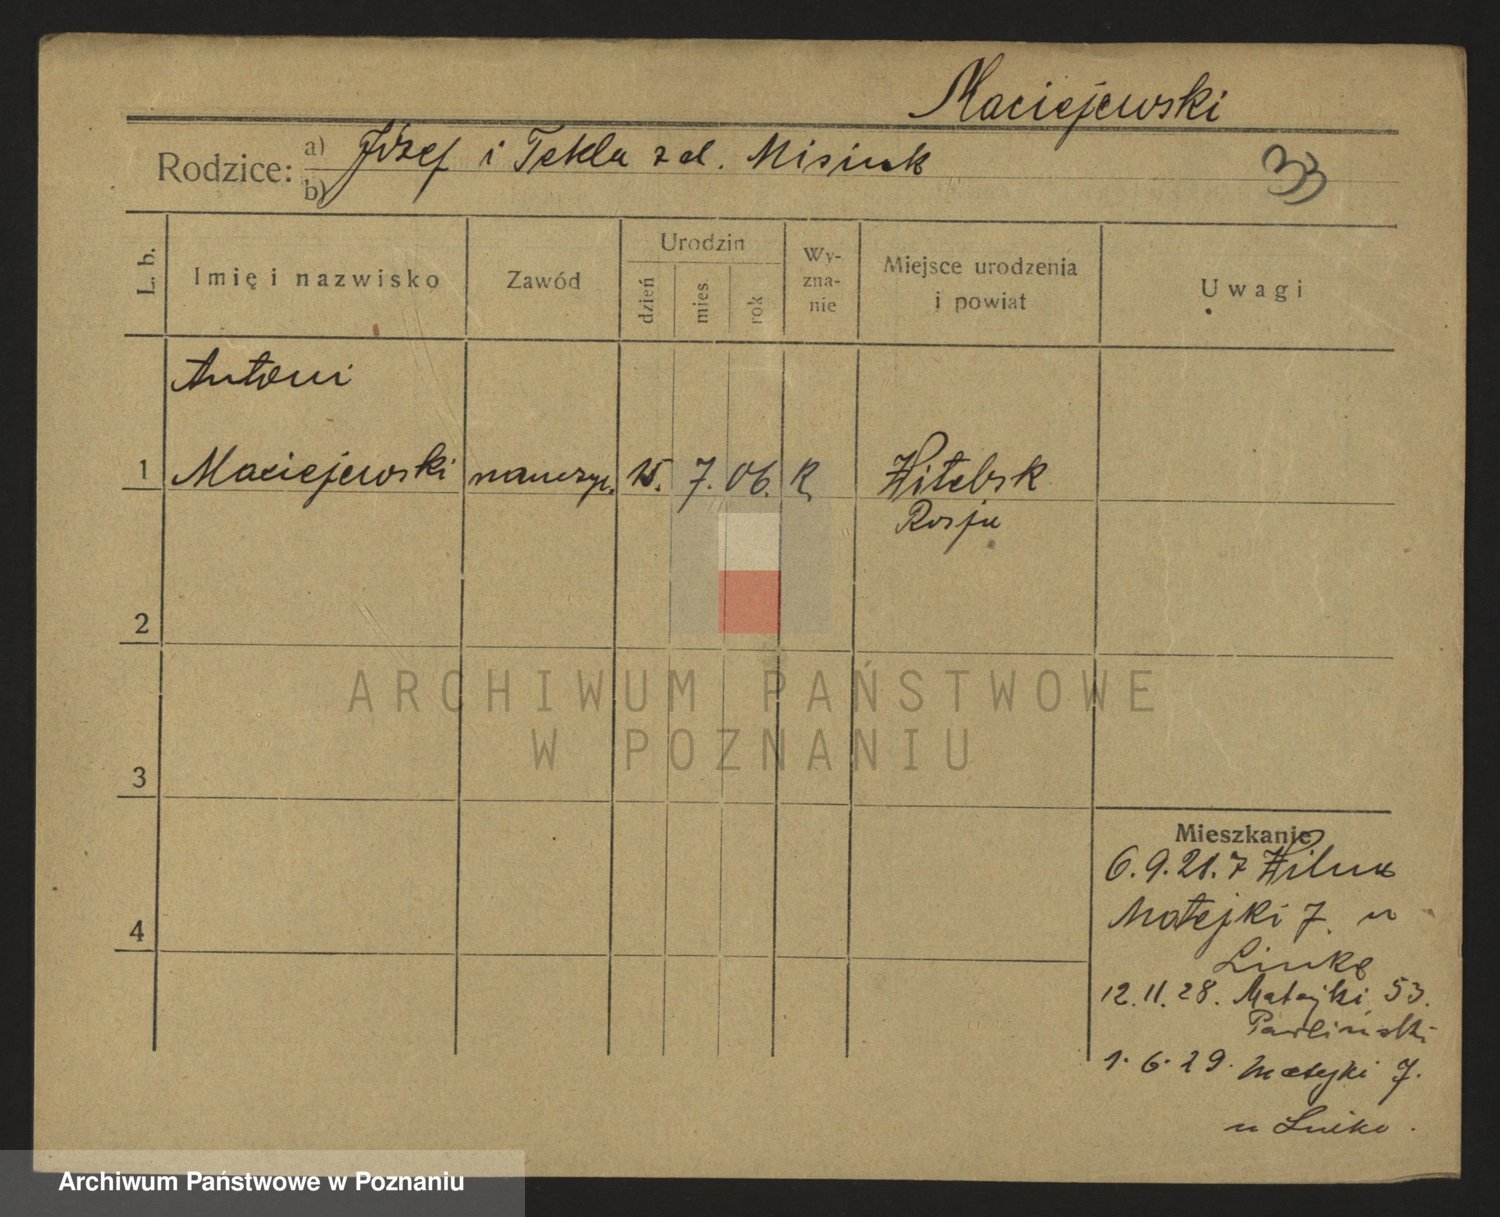 Maciejewski
Rodzice: a) Józef i Tekla z d. Misiuk
b)
33
L. b.
Imię i nazwisko
Zawód
Urodzin
dzień
mies
rok
Wy-
zna-
nie
Miejsce urodzenia
i powiat
Uwagi
Antoni
1 Maciejewski nauczyc. 15. 7. 06. k Witebsk
Rosja
2
3
4
Mieszkanie
6.9.28. z Wilna
Matejki 7. u
Linke
12.11.28. Matejki 53.
1.6.29. Matejki 7.
u Linke.
ARCHIWUM PAŃSTWOWE
W POZNANIU
Archiwum Państwowe w Poznaniu